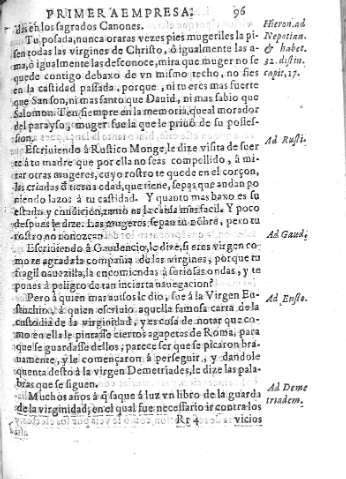 PRIMERA EMPRESA. 96
en los sagrados Canones.
Tu posada, nunca o raras vezes pies mugeriles la pi-
sen todas las virgines de Christo, ò igualmente las a-
ma, ò igualmente las desconoce, mira que muger no se
quede contigo debaxo de vn mismo techo, no fies
en la castidad passada, porque, ni tu eres mas fuerte
que Sanson, ni mas santo que Dauid, ni mas sabio que
Salomon. Ten siempre en la memoria, que al morador
del parayso, muger fue la que le priuò de su posses-
sion.
Escriuiendo à Rustico Monge, le dize visita de suer
te à tu madre que por ella no seas compellido, à mi-
rar otras mugeres, cuyo rostro te quede en el corçon,
las criadas que tiene, sepas que andan po
niendo lazos à tu castidad. Y quanto mas baxo es su
estado y condicion, tanto es la caida mas facil. Y poco
despues le dize. Las mugeres sepan tu nõbre, pero tu
rostro no conozcan.
Escriuiendo à Gaudencio, le dize, si eres virgen co-
mo te agrada la compañia de las virgines, porque tu
fragil nauezilla, la encomiendas à furiosas ondas, y te
pones à peligro de tan incierta nauegacion?
Pero à quien mas auisos le dio, fue à la Virgen Eu-
stochio, à quien escriuio aquella famosa carta de la
custodia de la virginidad, y es cosa de notar que co-
mo en ella le pintasse ciertos agapetas de Roma, para
que se guardasse dellos; parece ser que se picaron bra-
namente, y le començaron à perseguir, y dandole
quenta desto à la virgen Demetriades, le dize las pala-
bras que se siguen.
Muchos años à q̃ saque à luz vn libro de la guarda
de la virginidad, en el qual fue necessario ir contra los
Rr 4 vicios
Hieron. ad
Nepotian.
& habet.
32. distin.
capit. 17.
Ad Rusti.
Ad Gaud.
Ad Eusto.
Ad Deme
triadem.